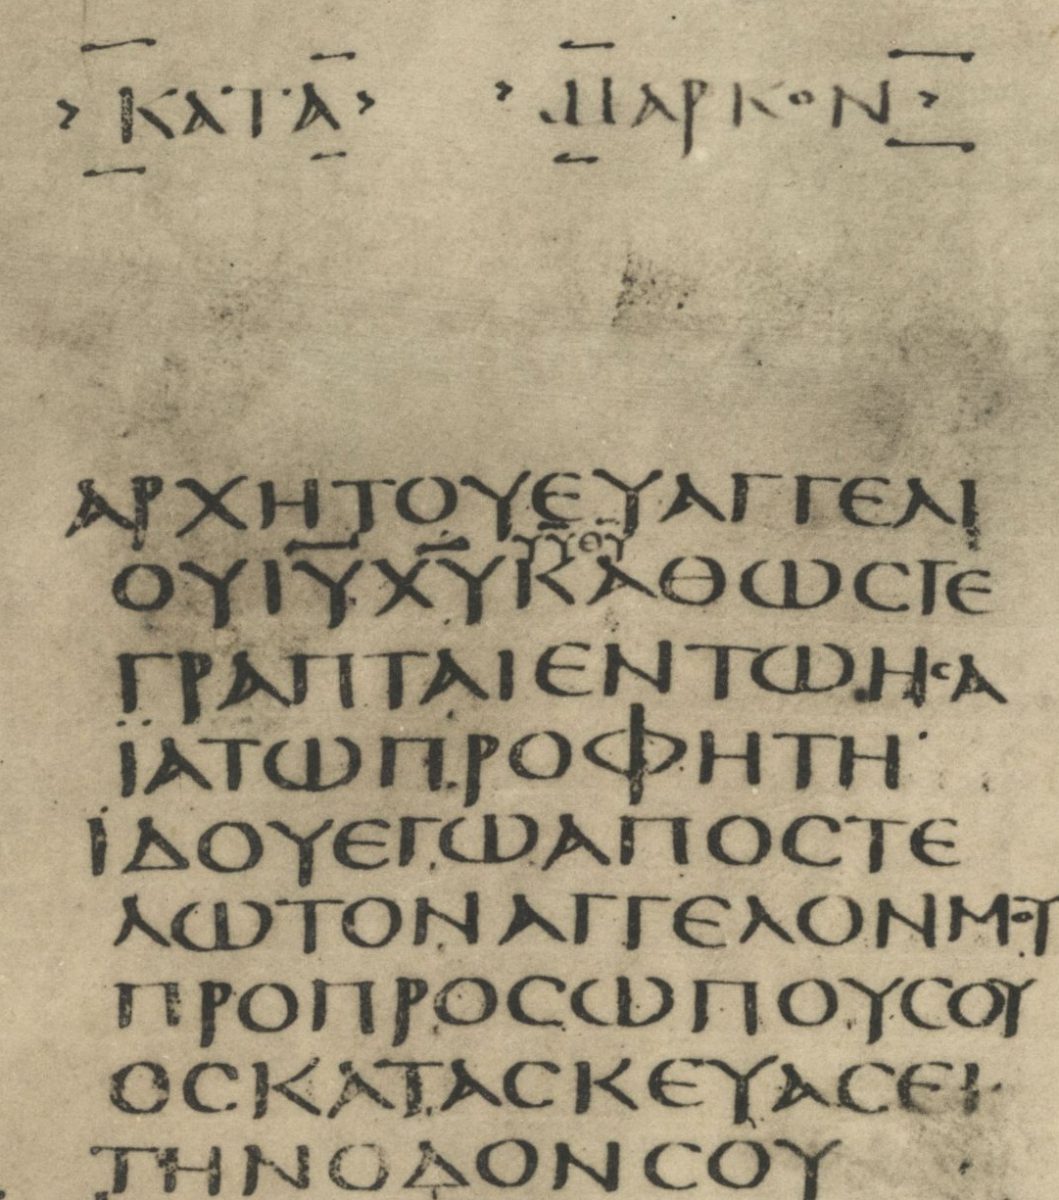 ΚΑΤΑ ΜΑΡΚΟΝ
ΑΡΧΗΤΟΥΕΥΑΓΓΕΛΙ
ΥΥΘΥ
ΟΥΙΥΧΥΚΑΘΩϹΓΕ
ΓΡΑΠΤΑΙΕΝΤΩΗϹΑ
ΪΑΤΩΠΡΟΦΗΤΗ
ΪΔΟΥΕΓΩΑΠΟϹΤΕ
ΛΩΤΟΝΑΓΓΕΛΟΝΜΟΥ
ΠΡΟΠΡΟϹΩΠΟΥϹΟΥ
ΟϹΚΑΤΑϹΚΕΥΑϹΕΙ
ΤΗΝΟΔΟΝϹΟΥ